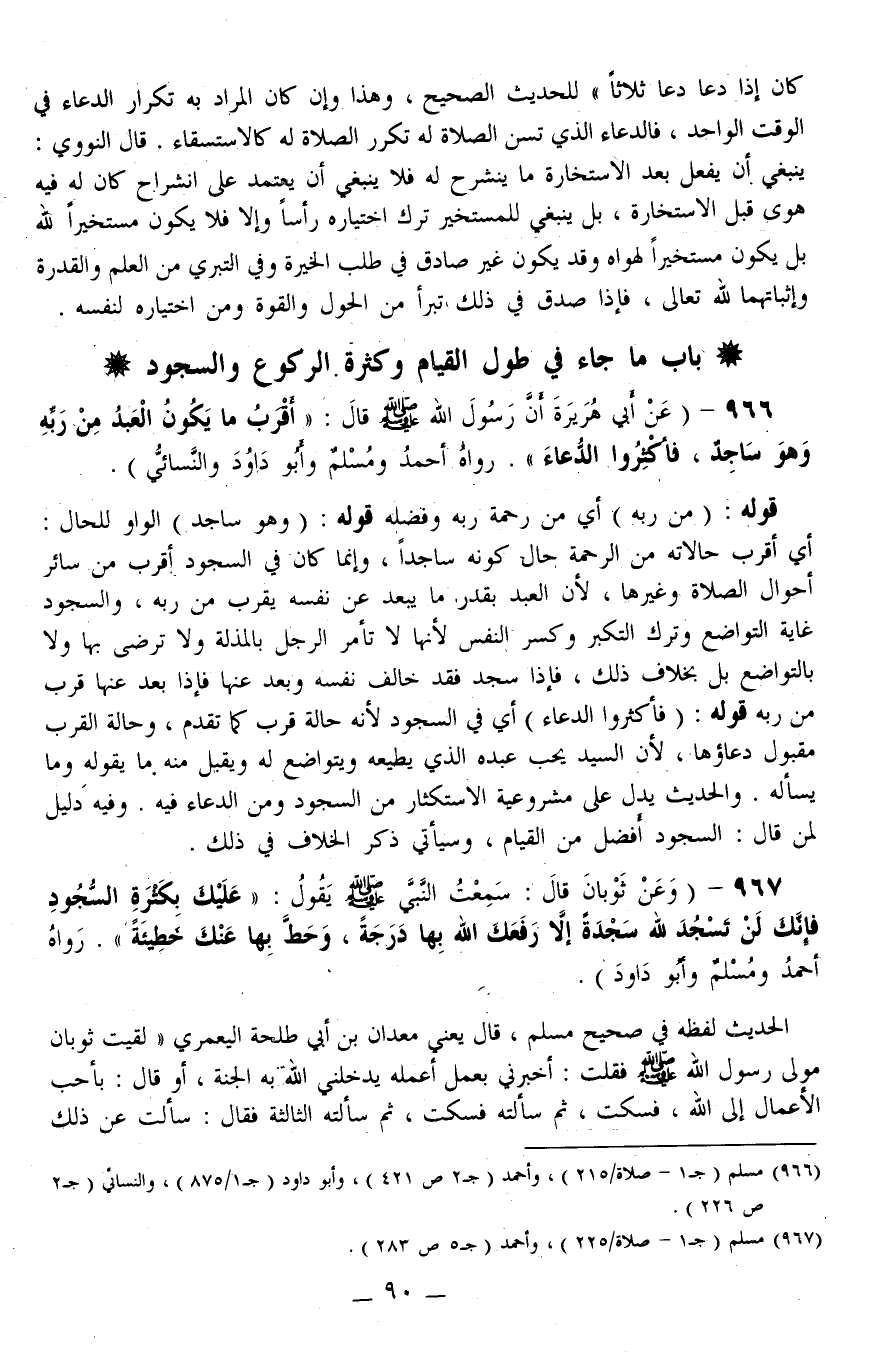 كان إذا دعا دعا ثلاثاً » للحديث الصحيح ، وهذا وإن كان المراد به تكرار الدعاء في
الوقت الواحد ، فالدعاء الذي تسن الصلاة له تكرر الصلاة له كالاستسقاء . قال النووي :
ينبغي أن يفعل بعد الاستخارة ما ينشرح له فلا ينبغي أن يعتمد على انشراح كان له فيه
هوى قبل الاستخارة ، بل ينبغي للمستخير ترك اختياره رأساً وإلا فلا يكون مستخيراً لله
بل يكون مستخيراً لهواه وقد يكون غير صادق في طلب الخيرة وفي التبري من العلم والقدرة
وإثباتهما لله تعالى ، فإذا صدق في ذلك تبرأ من الحول والقوة ومن اختياره لنفسه .
✸ باب ما جاء في طول القيام وكثرة الركوع والسجود ✸
٩٦٦ - ( عَنْ أَبي هُرَيرَةَ أَنَّ رَسُولَ الله ﷺ قالَ : « أَقْرَبُ ما يَكُونُ الْعَبْدُ مِنْ رَبِّهِ
وَهوَ سَاجِدٌ ، فَأَكْثِرُوا الدُّعاءَ » . رواهُ أحمدُ ومُسْلمٌ وأَبُو دَاوُدَ والنَّسائيُّ ) .
قوله : ( من ربه ) أي من رحمة ربه وفضله قوله : ( وهو ساجد ) الواو للحال :
أي أقرب حالاته من الرحمة حال كونه ساجداً ، وإنما كان في السجود أقرب من سائر
أحوال الصلاة وغيرها ، لأن العبد بقدر ما يبعد عن نفسه يقرب من ربه ، والسجود
غاية التواضع وترك التكبر وكسر النفس لأنها لا تأمر الرجل بالمذلة ولا ترضى بها ولا
بالتواضع بل بخلاف ذلك ، فإذا سجد فقد خالف نفسه وبعد عنها فإذا بعد عنها قرب
من ربه قوله : ( فأكثروا الدعاء ) أي في السجود لأنه حالة قرب كما تقدم ، وحالة القرب
مقبول دعاؤها ، لأن السيد يحب عبده الذي يطيعه ويتواضع له ويقبل منه ما يقوله وما
يسأله . والحديث يدل على مشروعية الاستكثار من السجود ومن الدعاء فيه . وفيه دليل
لمن قال : السجود أفضل من القيام ، وسيأتي ذكر الخلاف في ذلك .
٩٦٧ - ( وَعَنْ ثَوْبانَ قالَ : سَمِعْتُ النَّبيَّ ﷺ يَقُولُ : « عَلَيْكَ بِكَثْرَةِ السُّجُودِ
فإنَّكَ لَنْ تَسْجُدَ لله سَجْدَةً إلَّا رَفَعَكَ الله بِها دَرَجَةً ، وَحَطَّ بِها عَنْكَ خَطِيئَةً » . رَواهُ
أحمدُ ومُسْلمٌ وأَبُو دَاودَ ) .
الحديث لفظه في صحيح مسلم ، قال يعني معدان بن أبي طلحة اليعمري « لقيت ثوبان
مولى رسول الله ﷺ فقلت : أخبرني بعمل أعمله يدخلني الله به الجنة ، أو قال : بأحب
الأعمال إلى الله ، فسكت ، ثم سألته فسكت ، ثم سألته الثالثة فقال : سألت عن ذلك
(٩٦٦) مسلم ( جـ١ - صلاة/٢١٥ ) ، وأحمد ( جـ٢ ص ٤٢١ ) ، وأبو داود ( جـ١/٨٧٥ ) ، والنسائي ( جـ٢
ص ٢٢٦ ) .
(٩٦٧) مسلم ( جـ١ - صلاة/٢٢٥ ) ، وأحمد ( جـ٥ ص ٢٨٣ ) .
_ ٩٠ _